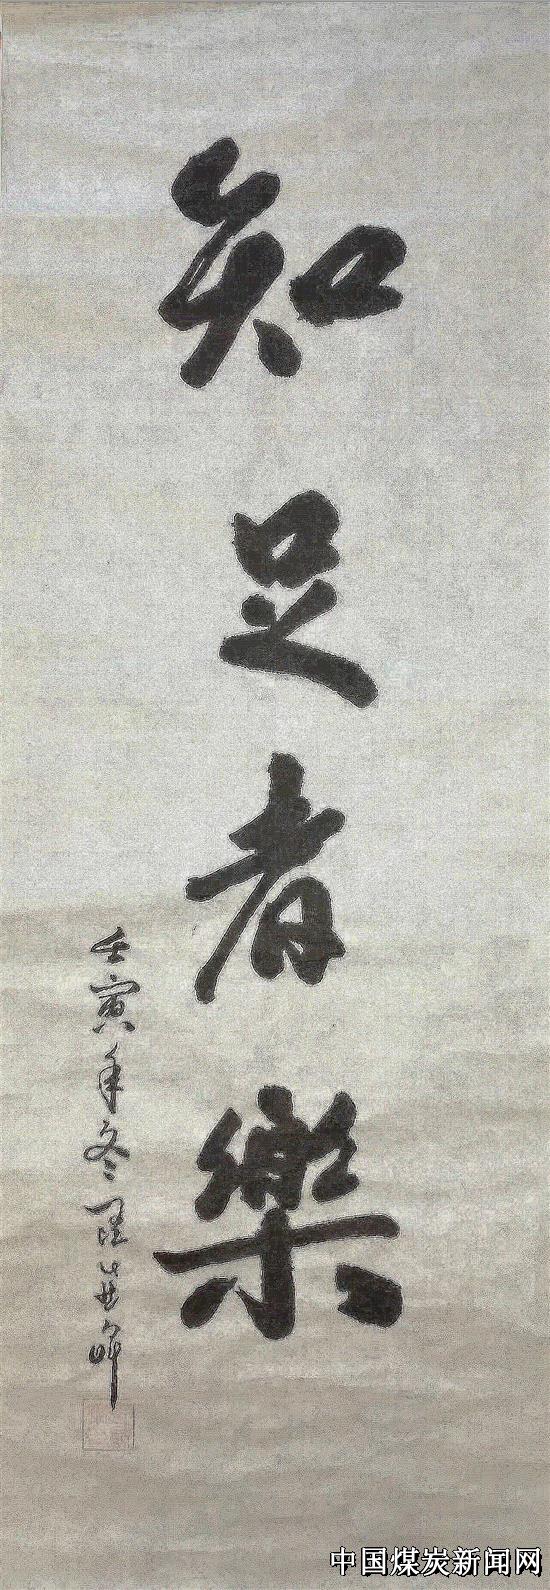 知足者樂
壬寅年冬
中国煤炭新闻网